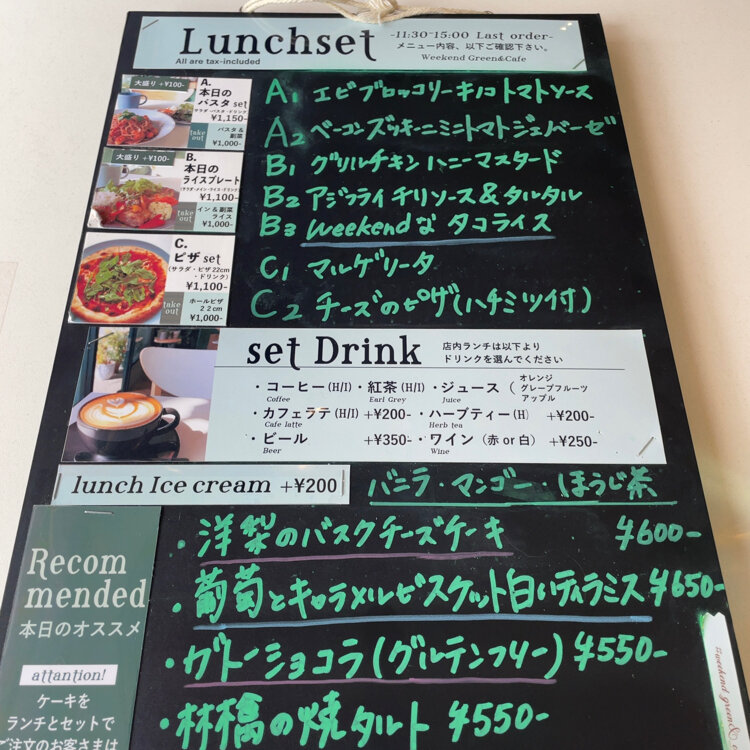 Lunchset
-11:30~15:00 Last order-
メニュー内容、以下ご確認下さい。
All are tax-included
Weekend Green&Cafe
大盛り +¥100-
A.
本日の
パスタ set
(サラダ・パスタ・ドリンク)
¥1,150-
take out
パスタ&
副菜
¥1,000-
A1 エビブロッコリーキノコトマトソース
A2 ベーコンズッキーニミニトマトジェノバーゼ
大盛り +¥100-
B.
本日の
ライスプレート
(サラダ・メイン・ライス・ドリンク)
¥1,100-
take out
イン&副菜
ライス
¥1,000-
B1 グリルチキンハニーマスタード
B2 アジフライチリソース&タルタル
B3 weekendなタコライス
C.
ピザ set
(サラダ・ピザ22cm
・ドリンク)
¥1,100-
take out
ホールピザ
22cm
¥1,000-
C1 マルゲリータ
C2 チーズのピザ(ハチミツ付)
set Drink
店内ランチは以下より
ドリンクを選んでください
・コーヒー(H/I)・紅茶(H/I)・ジュース(オレンジ
グレープフルーツ
アップル
Coffee Earl Grey Juice
・カフェラテ(H/I) +¥200- ・ハーブティー(H) +¥200-
Cafe latte Herb tea
・ビール +¥350- ・ワイン(赤or白) +¥250-
Beer Wine
lunch Ice cream +¥200
バニラ・マンゴー・ほうじ茶
Recom
mended
本日のオススメ
attantion!
ケーキを
ランチとセットで
ご注文のお客さまは
・洋梨のバスクチーズケーキ ¥600-
・葡萄とキャラメルビスケット白いティラミス ¥650-
・ガトーショコラ(グルテンフリー) ¥550-
・林檎の焼タルト ¥550-